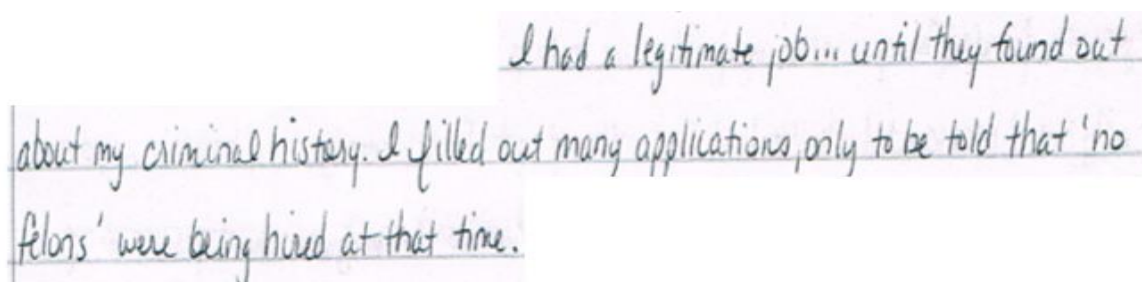 I had a legitimate job... until they found out
about my criminal history. I filled out many applications, only to be told that 'no
felons' were being hired at that time.